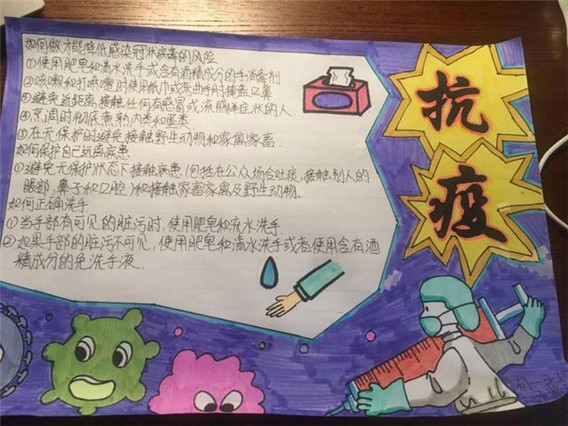 如何做才能降低感染冠状病毒的风险
①使用肥皂和清水洗手或含有酒精成分的手消毒剂
②咳嗽和打喷嚏时使用纸巾或弯曲手肘掩盖口鼻
③避免近距离接触任何有感冒或流感样症状的人
④烹调时彻底煮熟肉类和蛋类
⑤在无保护时避免接触野生动物和家禽家畜.
如何保护自己远离疾患
①避免无保护状态下接触病患(包括在公众场合吐痰,接触别人的
眼部,鼻子和口腔)和接触家畜家禽及野生动物.
如何正确洗手
①当手部有可见的脏污时,使用肥皂和流水洗手.
②如果手部的脏污不可见,使用肥皂和清水洗手或者使用含有酒
精成分的免洗手液.
抗
疫